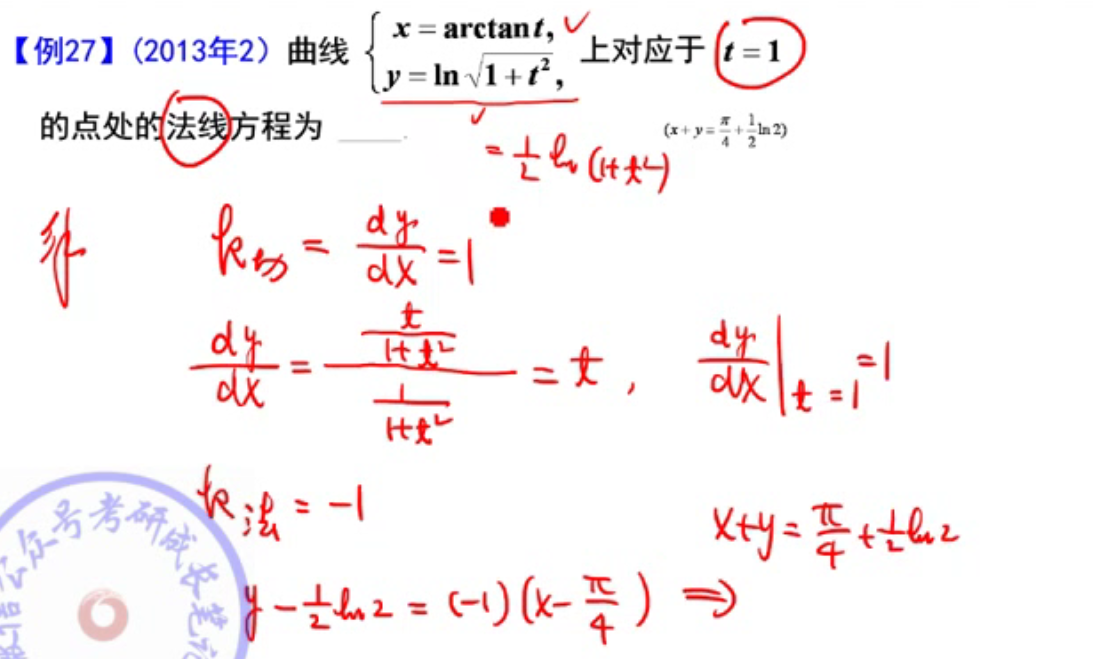 【例27】(2013年2) 曲线 { x = arctan t, y = ln √(1+t²), 上对应于 t = 1
的点处的法线方程为 ____.
(x+y=π/4+1/2 ln2)
= 1/2 ln(1+t²)
解 k切 = dy/dx = 1
dy/dx = (t/(1+t²))/(1/(1+t²)) = t, dy/dx|t=1 = 1
k法 = -1
x+y = π/4 + 1/2 ln2
y - 1/2 ln2 = (-1)(x - π/4) ⇒
公众号考研成女笔记